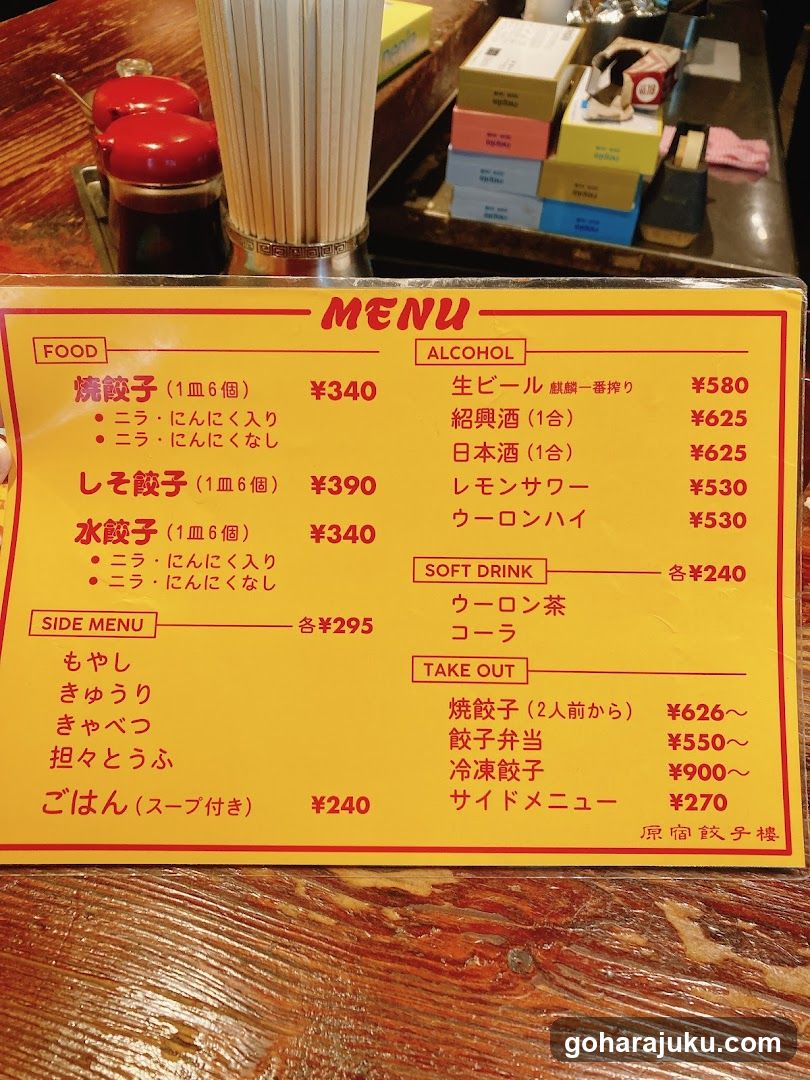 MENU
FOOD
焼餃子(1皿6個) ¥340
• ニラ・にんにく入り
• ニラ・にんにくなし
しそ餃子(1皿6個) ¥390
水餃子(1皿6個) ¥340
• ニラ・にんにく入り
• ニラ・にんにくなし
SIDE MENU 各¥295
もやし
きゅうり
きゃべつ
担々とうふ
ごはん(スープ付き) ¥240
ALCOHOL
生ビール 麒麟一番搾り ¥580
紹興酒(1合) ¥625
日本酒(1合) ¥625
レモンサワー ¥530
ウーロンハイ ¥530
SOFT DRINK 各¥240
ウーロン茶
コーラ
TAKE OUT
焼餃子(2人前から) ¥626〜
餃子弁当 ¥550〜
冷凍餃子 ¥900〜
サイドメニュー ¥270
原宿餃子樓
goharajuku.com